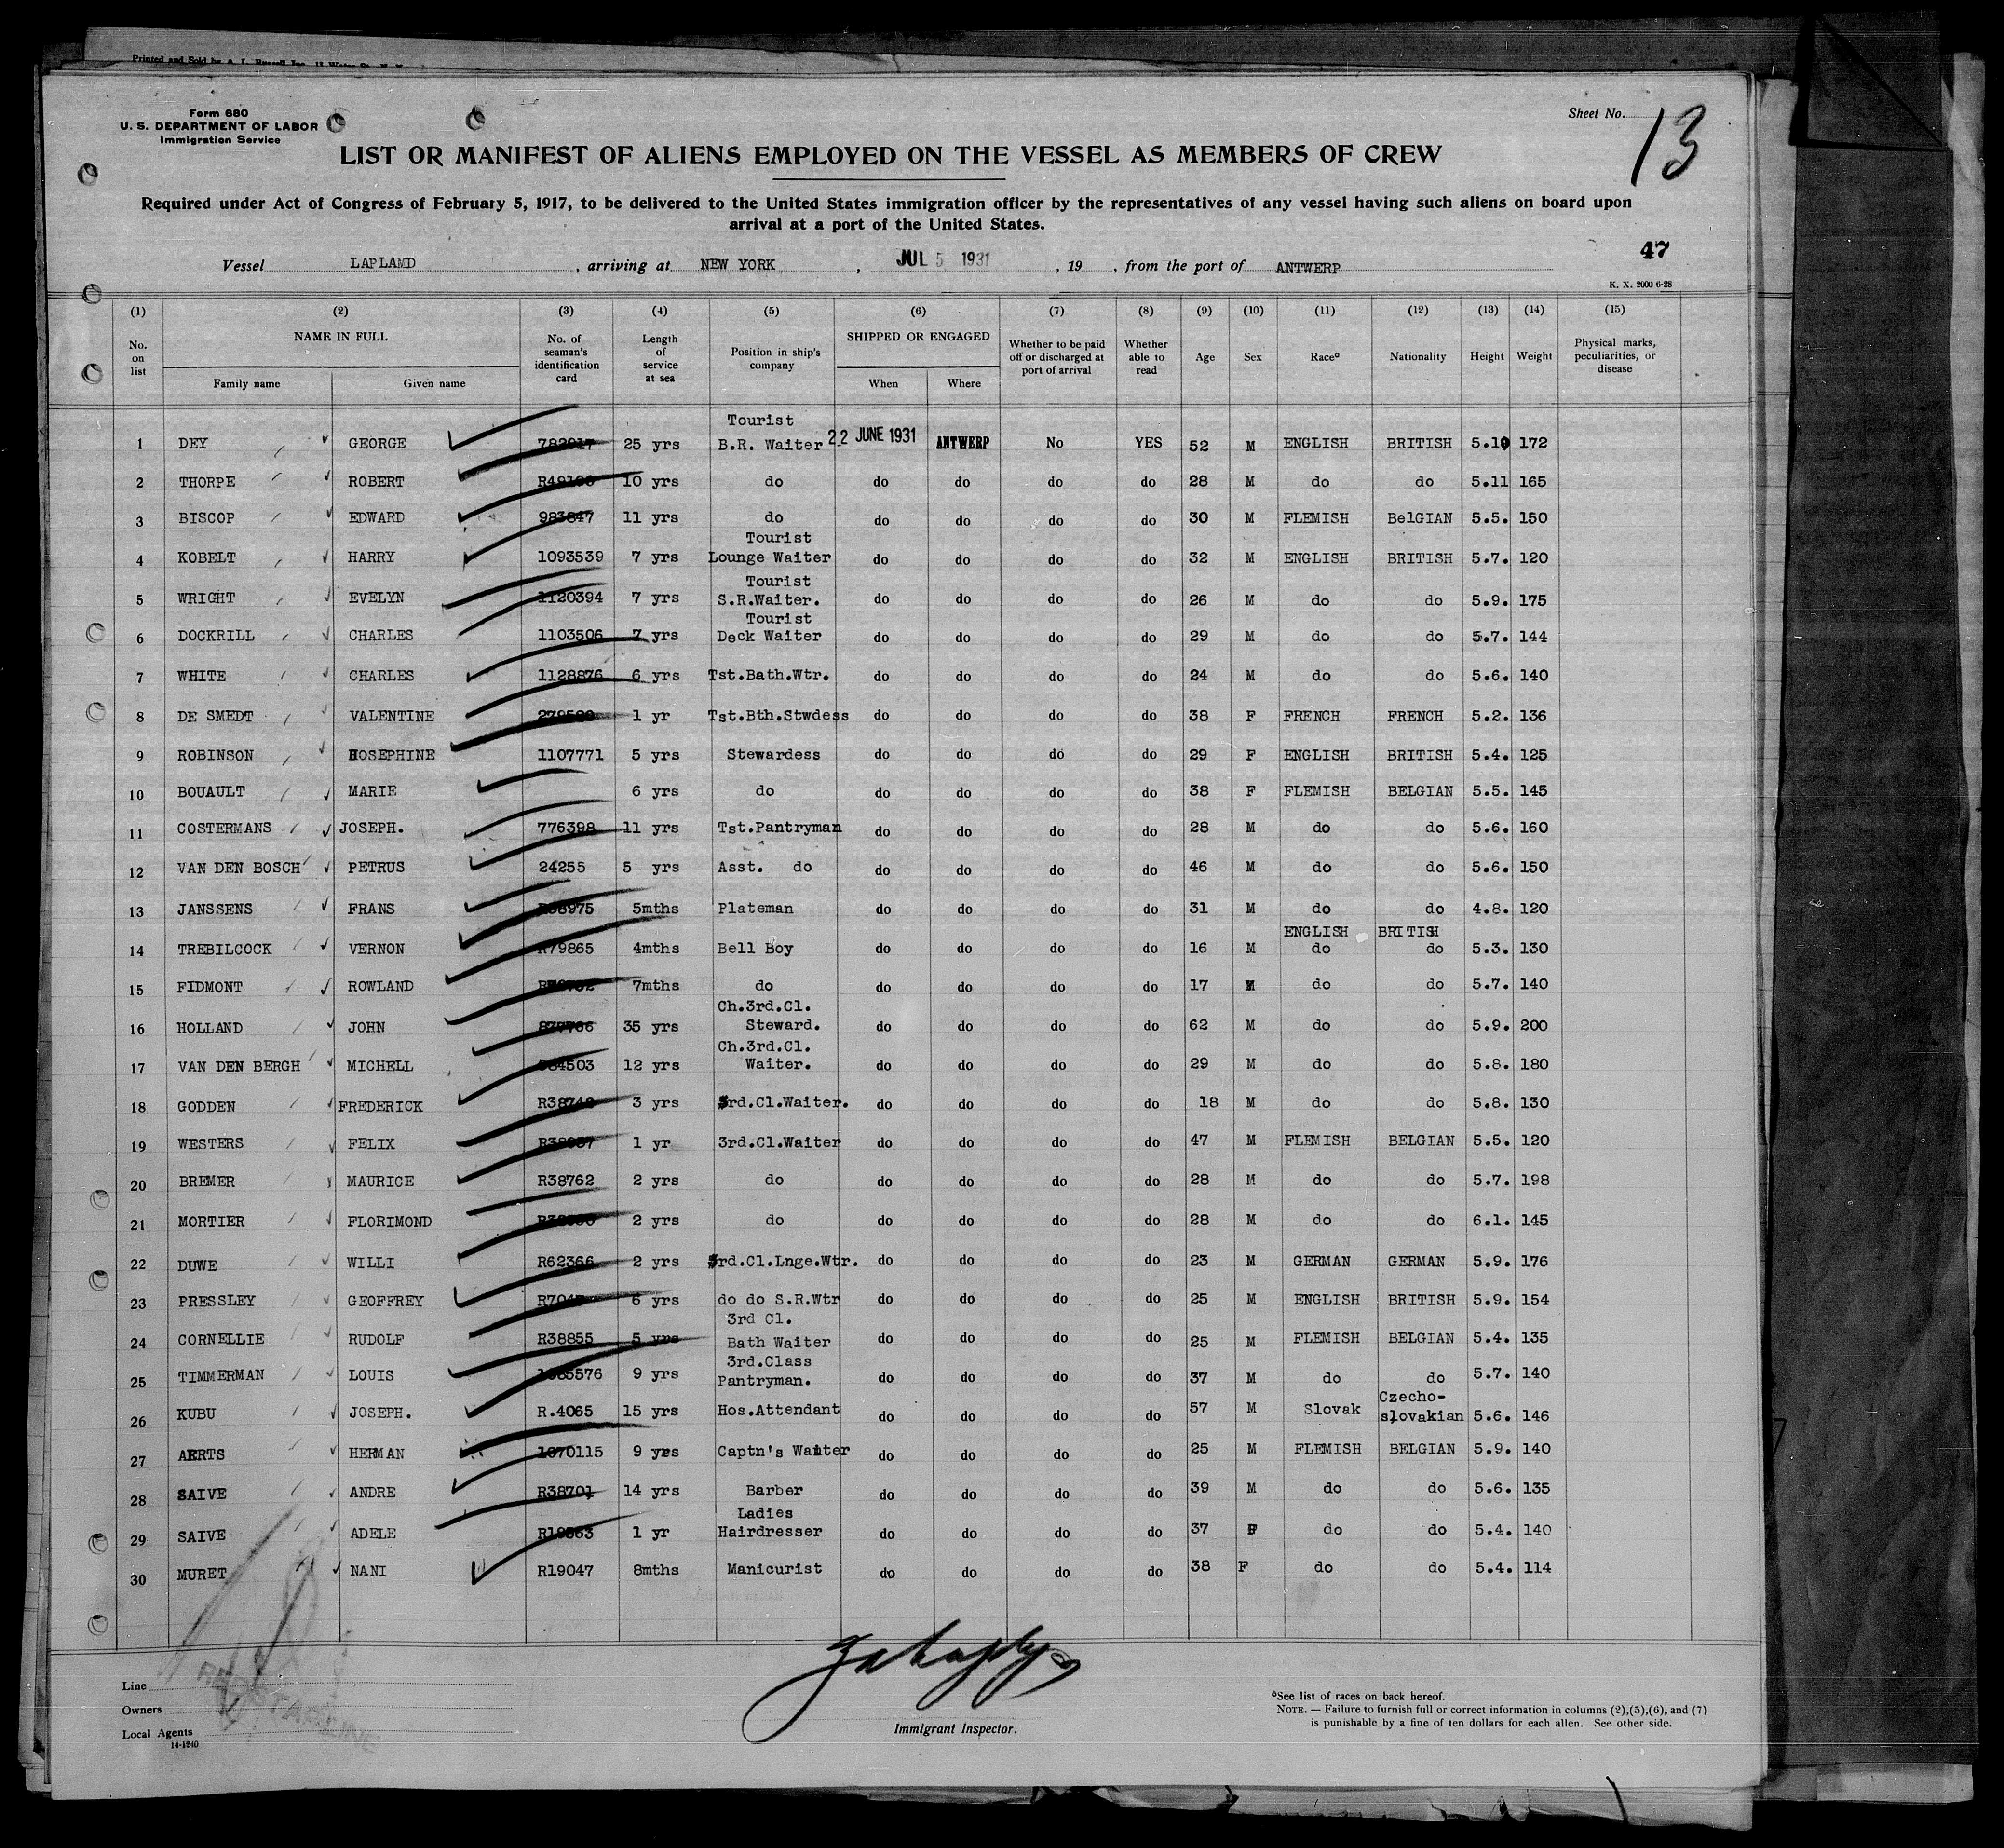 Printed and Sold by A. L. Russell Inc. 12 Water St. N. Y.
Form 680
U. S. DEPARTMENT OF LABOR
Immigration Service
Sheet No. 13
LIST OR MANIFEST OF ALIENS EMPLOYED ON THE VESSEL AS MEMBERS OF CREW
Required under Act of Congress of February 5, 1917, to be delivered to the United States immigration officer by the representatives of any vessel having such aliens on board upon
arrival at a port of the United States.
47
Vessel LAPLAMD , arriving at NEW YORK , JUL 5 1931 , 19 , from the port of ANTWERP
K. X. 2000 6-28
(1) (2) (3) (4) (5) (6) (7) (8) (9) (10) (11) (12) (13) (14) (15)
No. on list NAME IN FULL Family name Given name No. of seaman's identification card Length of service at sea Position in ship's company SHIPPED OR ENGAGED When Where Whether to be paid off or discharged at port of arrival Whether able to read Age Sex Race° Nationality Height Weight Physical marks, peculiarities, or disease
1 DEY GEORGE 25 yrs Tourist B.R. Waiter 22 JUNE 1931 ANTWERP No YES 52 M ENGLISH BRITISH 5.10 172
2 THORPE ROBERT 10 yrs do do do do do 28 M do do 5.11 165
3 BISCOP EDWARD 983847 11 yrs do do do do do 30 M FLEMISH BelGIAN 5.5. 150
4 KOBELT HARRY 1093539 7 yrs Tourist Lounge Waiter do do do do 32 M ENGLISH BRITISH 5.7. 120
5 WRIGHT EVELYN 1120394 7 yrs Tourist S.R.Waiter. do do do do 26 M do do 5.9. 175
6 DOCKRILL CHARLES 1103506 7 yrs Tourist Deck Waiter do do do do 29 M do do 5.7. 144
7 WHITE CHARLES 1128876 6 yrs Tst.Bath.Wtr. do do do do 24 M do do 5.6. 140
8 DE SMEDT VALENTINE 1 yr Tst.Bth.Stwdess do do do do 38 F FRENCH FRENCH 5.2. 136
9 ROBINSON HOSEPHINE 1107771 5 yrs Stewardess do do do do 29 F ENGLISH BRITISH 5.4. 125
10 BOUAULT MARIE 6 yrs do do do do do 38 F FLEMISH BELGIAN 5.5. 145
11 COSTERMANS JOSEPH. 776398 11 yrs Tst.Pantryman do do do do 28 M do do 5.6. 160
12 VAN DEN BOSCH PETRUS 24255 5 yrs Asst. do do do do do 46 M do do 5.6. 150
13 JANSSENS FRANS 5mths Plateman do do do do 31 M do do 4.8. 120
14 TREBILCOCK VERNON R79865 4mths Bell Boy do do do do 16 M ENGLISH do BRITISH do 5.3. 130
15 FIDMONT ROWLAND 7mths do do do do do 17 M do do 5.7. 140
16 HOLLAND JOHN 35 yrs Ch.3rd.Cl. Steward. do do do do 62 M do do 5.9. 200
17 VAN DEN BERGH MICHELL 12 yrs Ch.3rd.Cl. Waiter. do do do do 29 M do do 5.8. 180
18 GODDEN FREDERICK 3 yrs 3rd.Cl.Waiter. do do do do 18 M do do 5.8. 130
19 WESTERS FELIX 1 yr 3rd.Cl.Waiter do do do do 47 M FLEMISH BELGIAN 5.5. 120
20 BREMER MAURICE R38762 2 yrs do do do do do 28 M do do 5.7. 198
21 MORTIER FLORIMOND 2 yrs do do do do do 28 M do do 6.1. 145
22 DUWE WILLI R62366 2 yrs 3rd.Cl.Lnge.Wtr. do do do do 23 M GERMAN GERMAN 5.9. 176
23 PRESSLEY GEOFFREY 6 yrs do do S.R.Wtr do do do do 25 M ENGLISH BRITISH 5.9. 154
24 CORNELLIE RUDOLF R38855 5 yrs 3rd Cl. Bath Waiter do do do do 25 M FLEMISH BELGIAN 5.4. 135
25 TIMMERMAN LOUIS 9 yrs 3rd.Class Pantryman. do do do do 37 M do do 5.7. 140
26 KUBU JOSEPH. R.4065 15 yrs Hos.Attendant do do do do 57 M Slovak Czecho-slovakian 5.6. 146
27 AERTS HERMAN 1070115 9 yrs Captn's Waiter do do do do 25 M FLEMISH BELGIAN 5.9. 140
28 SAIVE ANDRE R38701 14 yrs Barber do do do do 39 M do do 5.6. 135
29 SAIVE ADELE 1 yr Ladies Hairdresser do do do do 37 F do do 5.4. 140
30 MURET NANI R19047 8mths Manicurist do do do do 38 F do do 5.4. 114
Line
Owners
Local Agents
RED STAR LINE
14-1240
Immigrant Inspector.
°See list of races on back hereof.
NOTE. — Failure to furnish full or correct information in columns (2),(5),(6), and (7)
is punishable by a fine of ten dollars for each alien. See other side.